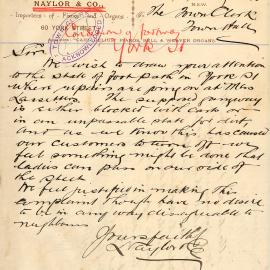 NAYLOR & CO.
Importers of Pianos and Organs
60 YORK STREET
N.S.W.
The Town Clerk
Town Hall
Condition of footway
York St
ACKNOWLEDGED
Sir
We wish to draw your attention
to the state of foot path in York St
where repairs are going on at Mess
Lassetters. The supposed gangway
is either blocked with carts or
in an unpassable state for dirt,
and we know this has caused
our customers to turn off we
feel something might be done that
ladies can pass on our side of
the street
We feel justified in making this
complaint though have no desire
to be in any way disagreeable to
neighbours
Yours faithf
Naylor & Co